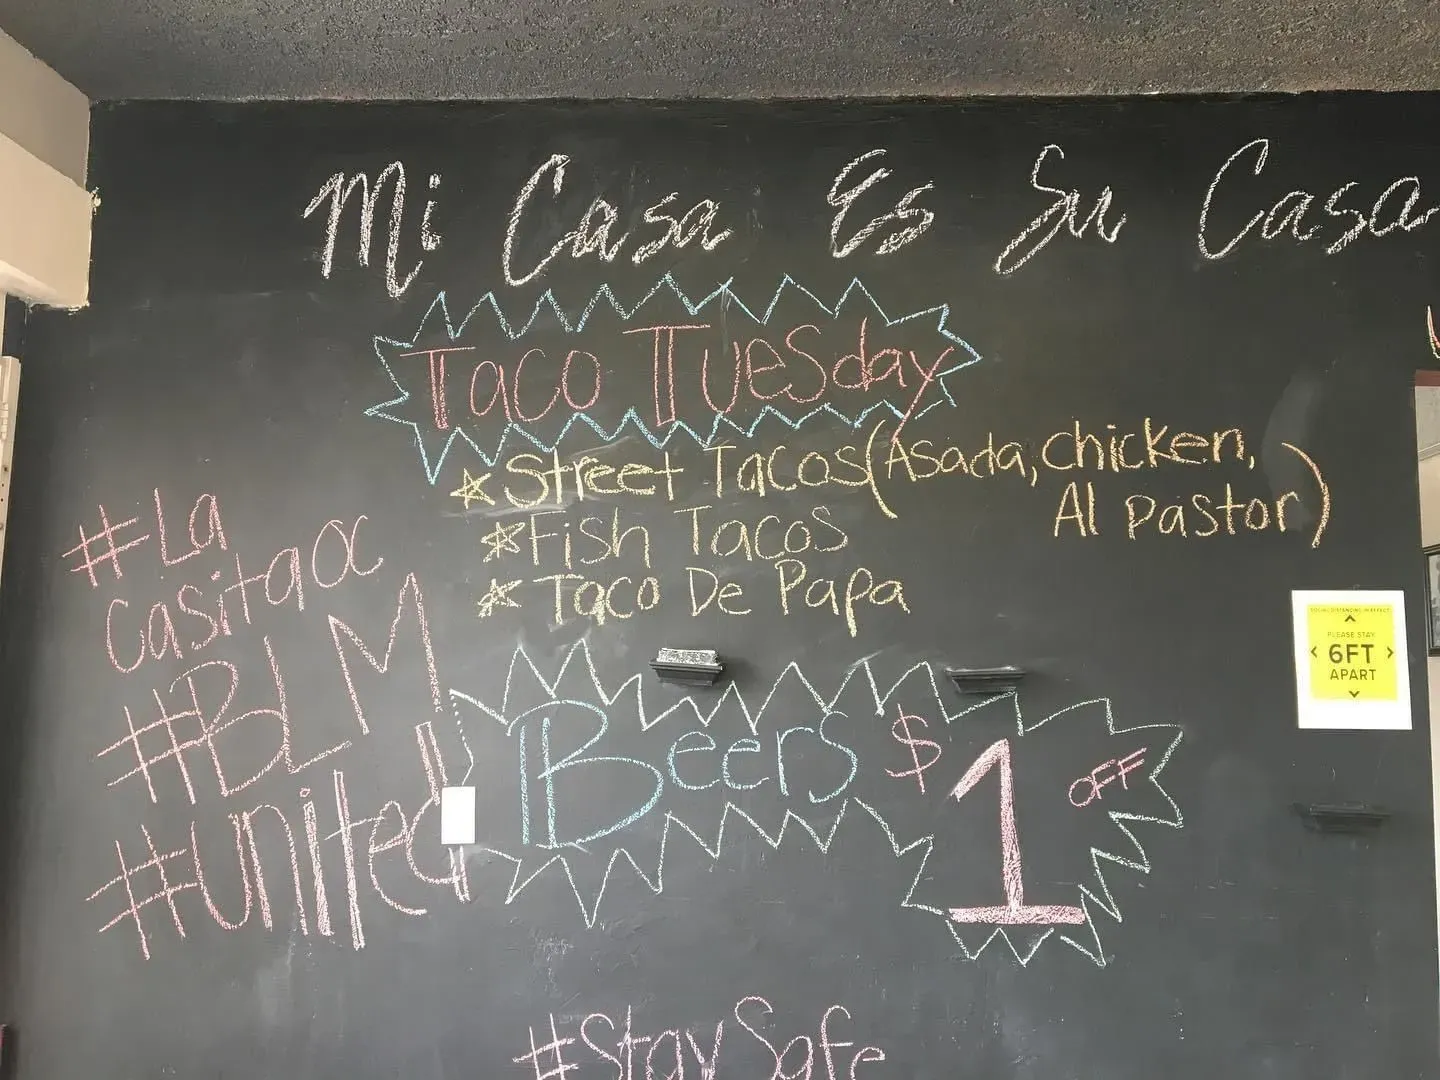 Mi Casa Es Su Casa
Taco Tuesday
Street Tacos (Asada, Chicken,
Al Pastor)
Fish Tacos
Taco De Papa
#La
casitaoc
#BLM
#united
Beers $1 OFF
SOCIAL DISTANCING IN EFFECT
PLEASE STAY
6FT
APART
#StaySafe